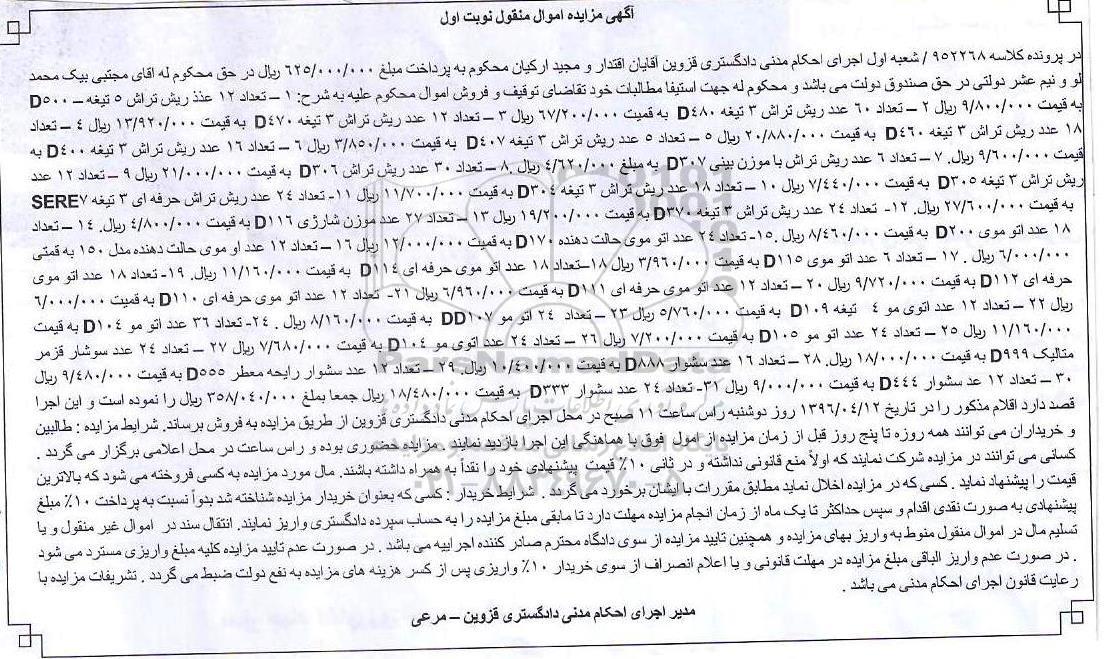 آگهی مزایده اموال منقول نوبت اول
در پرونده کلاسه ۹۵۲۲۶۸ / شعبه اول اجرای احکام مدنی دادگستری قزوین آقایان اقتدار و مجید ارکیان محکوم به پرداخت مبلغ ۶۲۵/۰۰۰/۰۰۰ ریال در حق محکوم له اقای مجتبی بیک محمد
لو و نیم عشر دولتی در حق صندوق دولت می باشد و محکوم له جهت استیفا مطالبات خود تقاضای توقیف و فروش اموال محکوم علیه به شرح: ۱ – تعداد ۱۲ عذذ ریش تراش ۵ تیغه – D۵۰۰
به قیمت ۹/۸۰۰/۰۰۰ ریال ۲ – تعداد ۶۰ عدد ریش تراش ۳ تیغه D۴۸۰ به قمیت ۶۷/۲۰۰/۰۰۰ ریال ۳ – تعداد ۱۲ عدد ریش تراش ۳ تیغه D۴۷۰ به قیمت ۱۳/۹۲۰/۰۰۰ ریال ۴ – تعداد
۱۸ عدد ریش تراش ۳ تیغه D۴۶۰ به قیمت ۲۰/۸۸۰/۰۰۰ ریال ۵ – تعداد ۵ عدد ریش تراش ۳ تیغه D۴۰۷ به قیمت ۳/۸۵۰/۰۰۰ ریال ۶ – تعداد ۱۶ عدد ریش تراش ۳ تیغه D۴۰۰ به
قیمت ۹/۶۰۰/۰۰۰ ریال. ۷ – تعداد ۶ عدد ریش تراش با موزن بینی D۳۰۷ به مبلغ ۴/۶۲۰/۰۰۰ ریال .۸ – تعداد ۳۰ عدد ریش تراش D۳۰۶ به قیمت ۲۱/۰۰۰/۰۰۰ ریال ۹ – تعداد ۱۲ عدد
ریش تراش ۳ تیغه D۳۰۵ به قیمت ۷/۴۴۰/۰۰۰ ریال ۱۰ – تعداد ۱۸ عدد ریش تراش ۳ تیغه D۳۰۴ به قیمت ۱۱/۷۰۰/۰۰۰ ریال ۱۱- تعداد ۲۴ عدد ریش تراش حرفه ای ۳ تیغه SERE۷
به قیمت ۲۷/۶۰۰/۰۰۰ ریال. ۱۲- تعداد ۲۴ عدد ریش تراش ۳ تیغه D۳۷۰ به قیمت ۱۹/۲۰۰/۰۰۰ ریال ۱۳ – تعداد ۲۷ عدد موزن شارژی D۱۱۶ به قیمت ۴/۸۰۰/۰۰۰ ریال. ۱۴ – تعداد
۱۸ عدد اتو موی D۲۰۰ به قیمت ۸/۴۶۰/۰۰۰ ریال .۱۵- تعداد ۲۴ عدد اتو موی حالت دهنده D۱۷۰ به قمیت ۱۲/۰۰۰/۰۰۰ ریال ۱۶ – تعداد ۱۲ عدد او موی حالت دهنده مدل ۱۵۰ به قمتی
۶/۰۰۰/۰۰۰ ریال . ۱۷ – تعداد ۶ عدد اتو موی D۱۱۵ به قیمت ۳/۹۶۰/۰۰۰ ریال ۱۸–تعداد ۱۸ عدد اتو موی حرفه ای D۱۱۴ به قیمت ۱۱/۱۶۰/۰۰۰ ریال. ۱۹- تعداد ۱۸ عدد اتو موی
حرفه ای D۱۱۲ به قیمت ۹/۷۲۰/۰۰۰ ریال ۲۰ – تعداد ۱۲ عدد اتو موی حرفه ای D۱۱۱ به قیمت ۶/۹۶۰/۰۰۰ ریال ۲۱- تعداد ۱۲ عدد اتو موی حرفه ای D۱۱۰ به قمیت ۶/۰۰۰/۰۰۰
ریال ۲۲ – تعداد ۱۲ عدد اتوی مو ۴ تیغه D۱۰۹ به قیمت ۵/۷۶۰/۰۰۰ ریال ۲۳ – تعداد ۲۴ اتو مو DD۱۰۷ به قیمت ۸/۱۶۰/۰۰۰ ریال . ۲۴- تعداد ۳۶ عدد اتو مو D۱۰۴ به قیمت
۱۱/۱۶۰/۰۰۰ ریال ۲۵ – تعداد ۲۴ عدد اتو مو D۱۰۵ به قیمت ۷/۲۰۰/۰۰۰ ریال ۲۶ – تعداد ۲۴ عدد اتوی مو D۱۰۴ به قیمت ۷/۶۸۰/۰۰۰ ریال ۲۷ – تعداد ۲۴ عدد سوشار قزمر
متالیک D۹۹۹ به قیمت ۱۸/۰۰۰/۰۰۰ ریال. ۲۸ – تعداد ۱۶ عدد سشوار D۸۸۸ به قیمت ۱۰/۴۰۰/۰۰۰ ریال. ۲۹ – تعداد ۱۲ عدد سشوار رایحه معطر D۵۵۵ به قیمت ۹/۴۸۰/۰۰۰ ریال
۳۰ – تعداد ۱۲ عد سشوار D۴۴۴ به قیمت ۹/۰۰۰/۰۰۰ ریال ۳۱- تعداد ۲۴ عدد سشوار D۳۳۳ به قیمت ۱۸/۴۸۰/۰۰۰ ریال جمعا بملغ ۳۵۸/۰۴۰/۰۰۰ ریال را نموده است و این اجرا
قصد دارد اقلام مذکور را در تاریخ ۱۳۹۶/۰۴/۱۲ روز دوشنبه راس ساعت ۱۱ صبح در محل اجرای احکام مدنی دادگستری قزوین از طریق مزایده به فروش برساند. شرایط مزایده : طالبین
و خریداران می توانند همه روزه تا پنج روز قبل از زمان مزایده از امول فوق با هماهنگی این اجرا بازدید نمایند . مزایده حضوری بوده و راس ساعت در محل اعلامی برگزار می گردد .
کسانی می توانند در مزایده شرکت نمایند که اولاً منع قانونی نداشته و در ثانی ۱۰٪ قیمت پیشنهادی خود را نقداً به همراه داشته باشند. مال مورد مزایده به کسی فروخته می شود که بالاترین
قیمت را پیشنهاد نماید . کسی که در مزایده اخلال نماید مطابق مقررات با ایشان برخورد می گردد . شرایط خریدار : کسی که بعنوان خریدار مزایده شناخته شد بدواً نسبت به پرداخت ۱۰٪ مبلغ
پیشنهادی به صورت نقدی اقدام و سپس حداکثر تا یک ماه از زمان انجام مزایده مهلت دارد تا مابقی مبلغ مزایده را به حساب سپرده دادگستری واریز نمایند. انتقال سند در اموال غیر منقول و یا
تسلیم مال در اموال منقول منوط به واریز بهای مزایده و همچنین تایید مزایده از سوی دادگاه محترم صادر کننده اجراییه می باشد . در صورت عدم تایید مزایده کلیه مبلغ واریزی مسترد می شود
. در صورت عدم واریز الباقی مبلغ مزایده در مهلت قانونی و یا اعلام انصراف از سوی خریدار ۱۰٪ واریزی پس از کسر هزینه های مزایده به نفع دولت ضبط می گردد . تشریفات مزایده با
رعایت قانون اجرای احکام مدنی می باشد .
مدیر اجرای احکام مدنی دادگستری قزوین – مرعی
ParsNamadData
۰۲۱-۸۸۳۴۹۶۷۰-۵